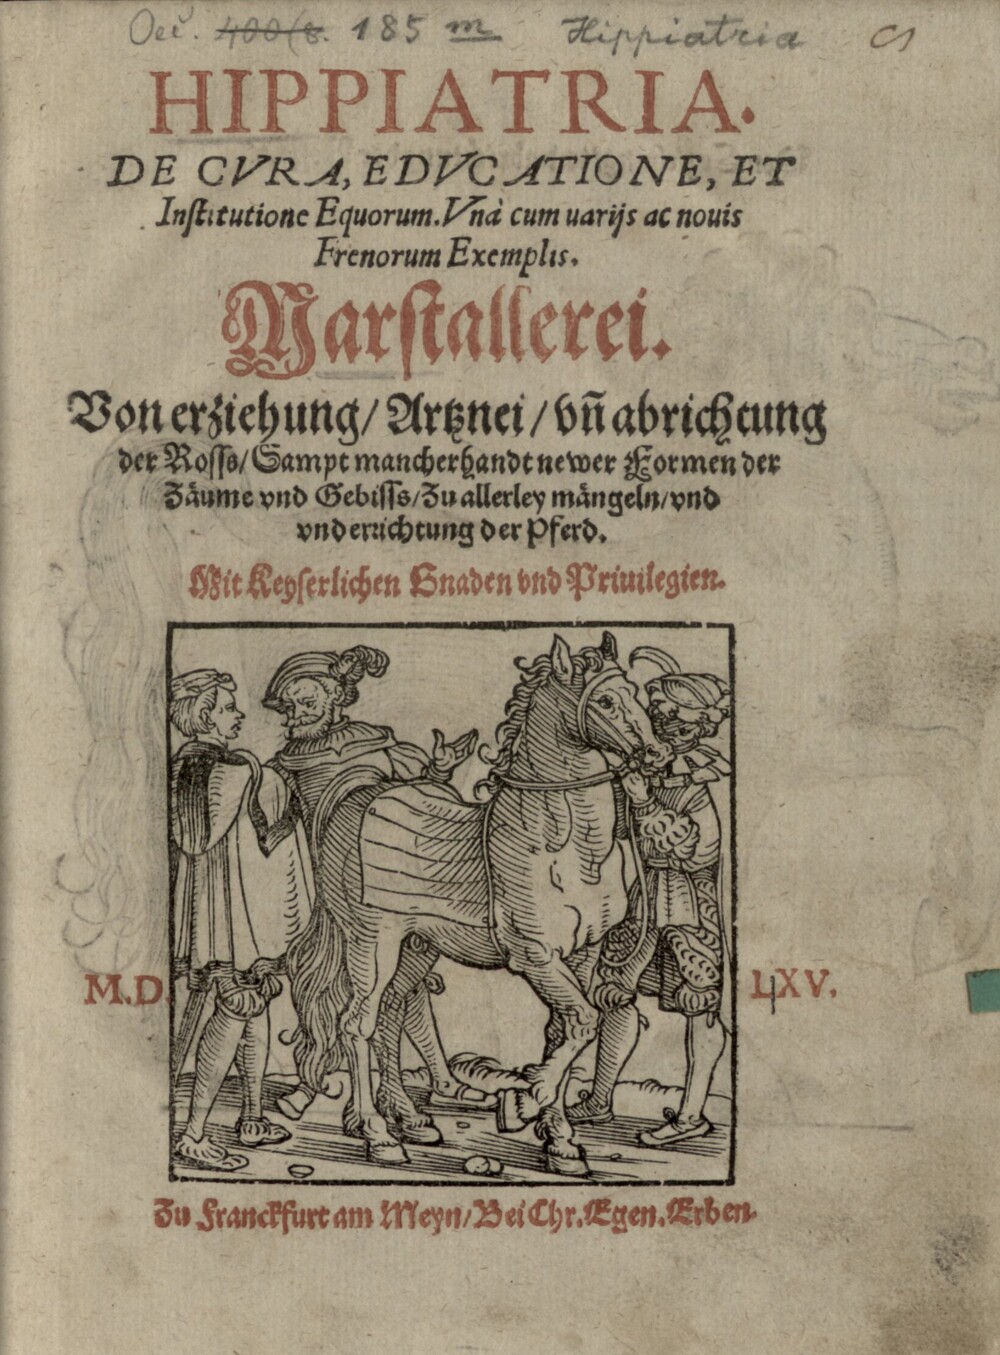 Oec. 400(8. 185 m Hippiatria
HIPPIATRIA.
DE CVRA, EDVCATIONE, ET
Institutione Equorum. Vnà cum uarijs ac nouis
Frenorum Exemplis.
Marſtallerei.
Von erziehung/ Artznei/ vñ abrichtung
der Roſſs/ Sampt mancherhandt newer Formen der
Zäume vnd Gebiſſs/ Zu allerley mängeln/ vnd
vnderrichtung der Pferd.
Mit Keyſerlichen Gnaden vnd Priuilegien.
M.D. LXV.
Zu Franckfurt am Meyn/ Bei Chr. Egen. Erben.